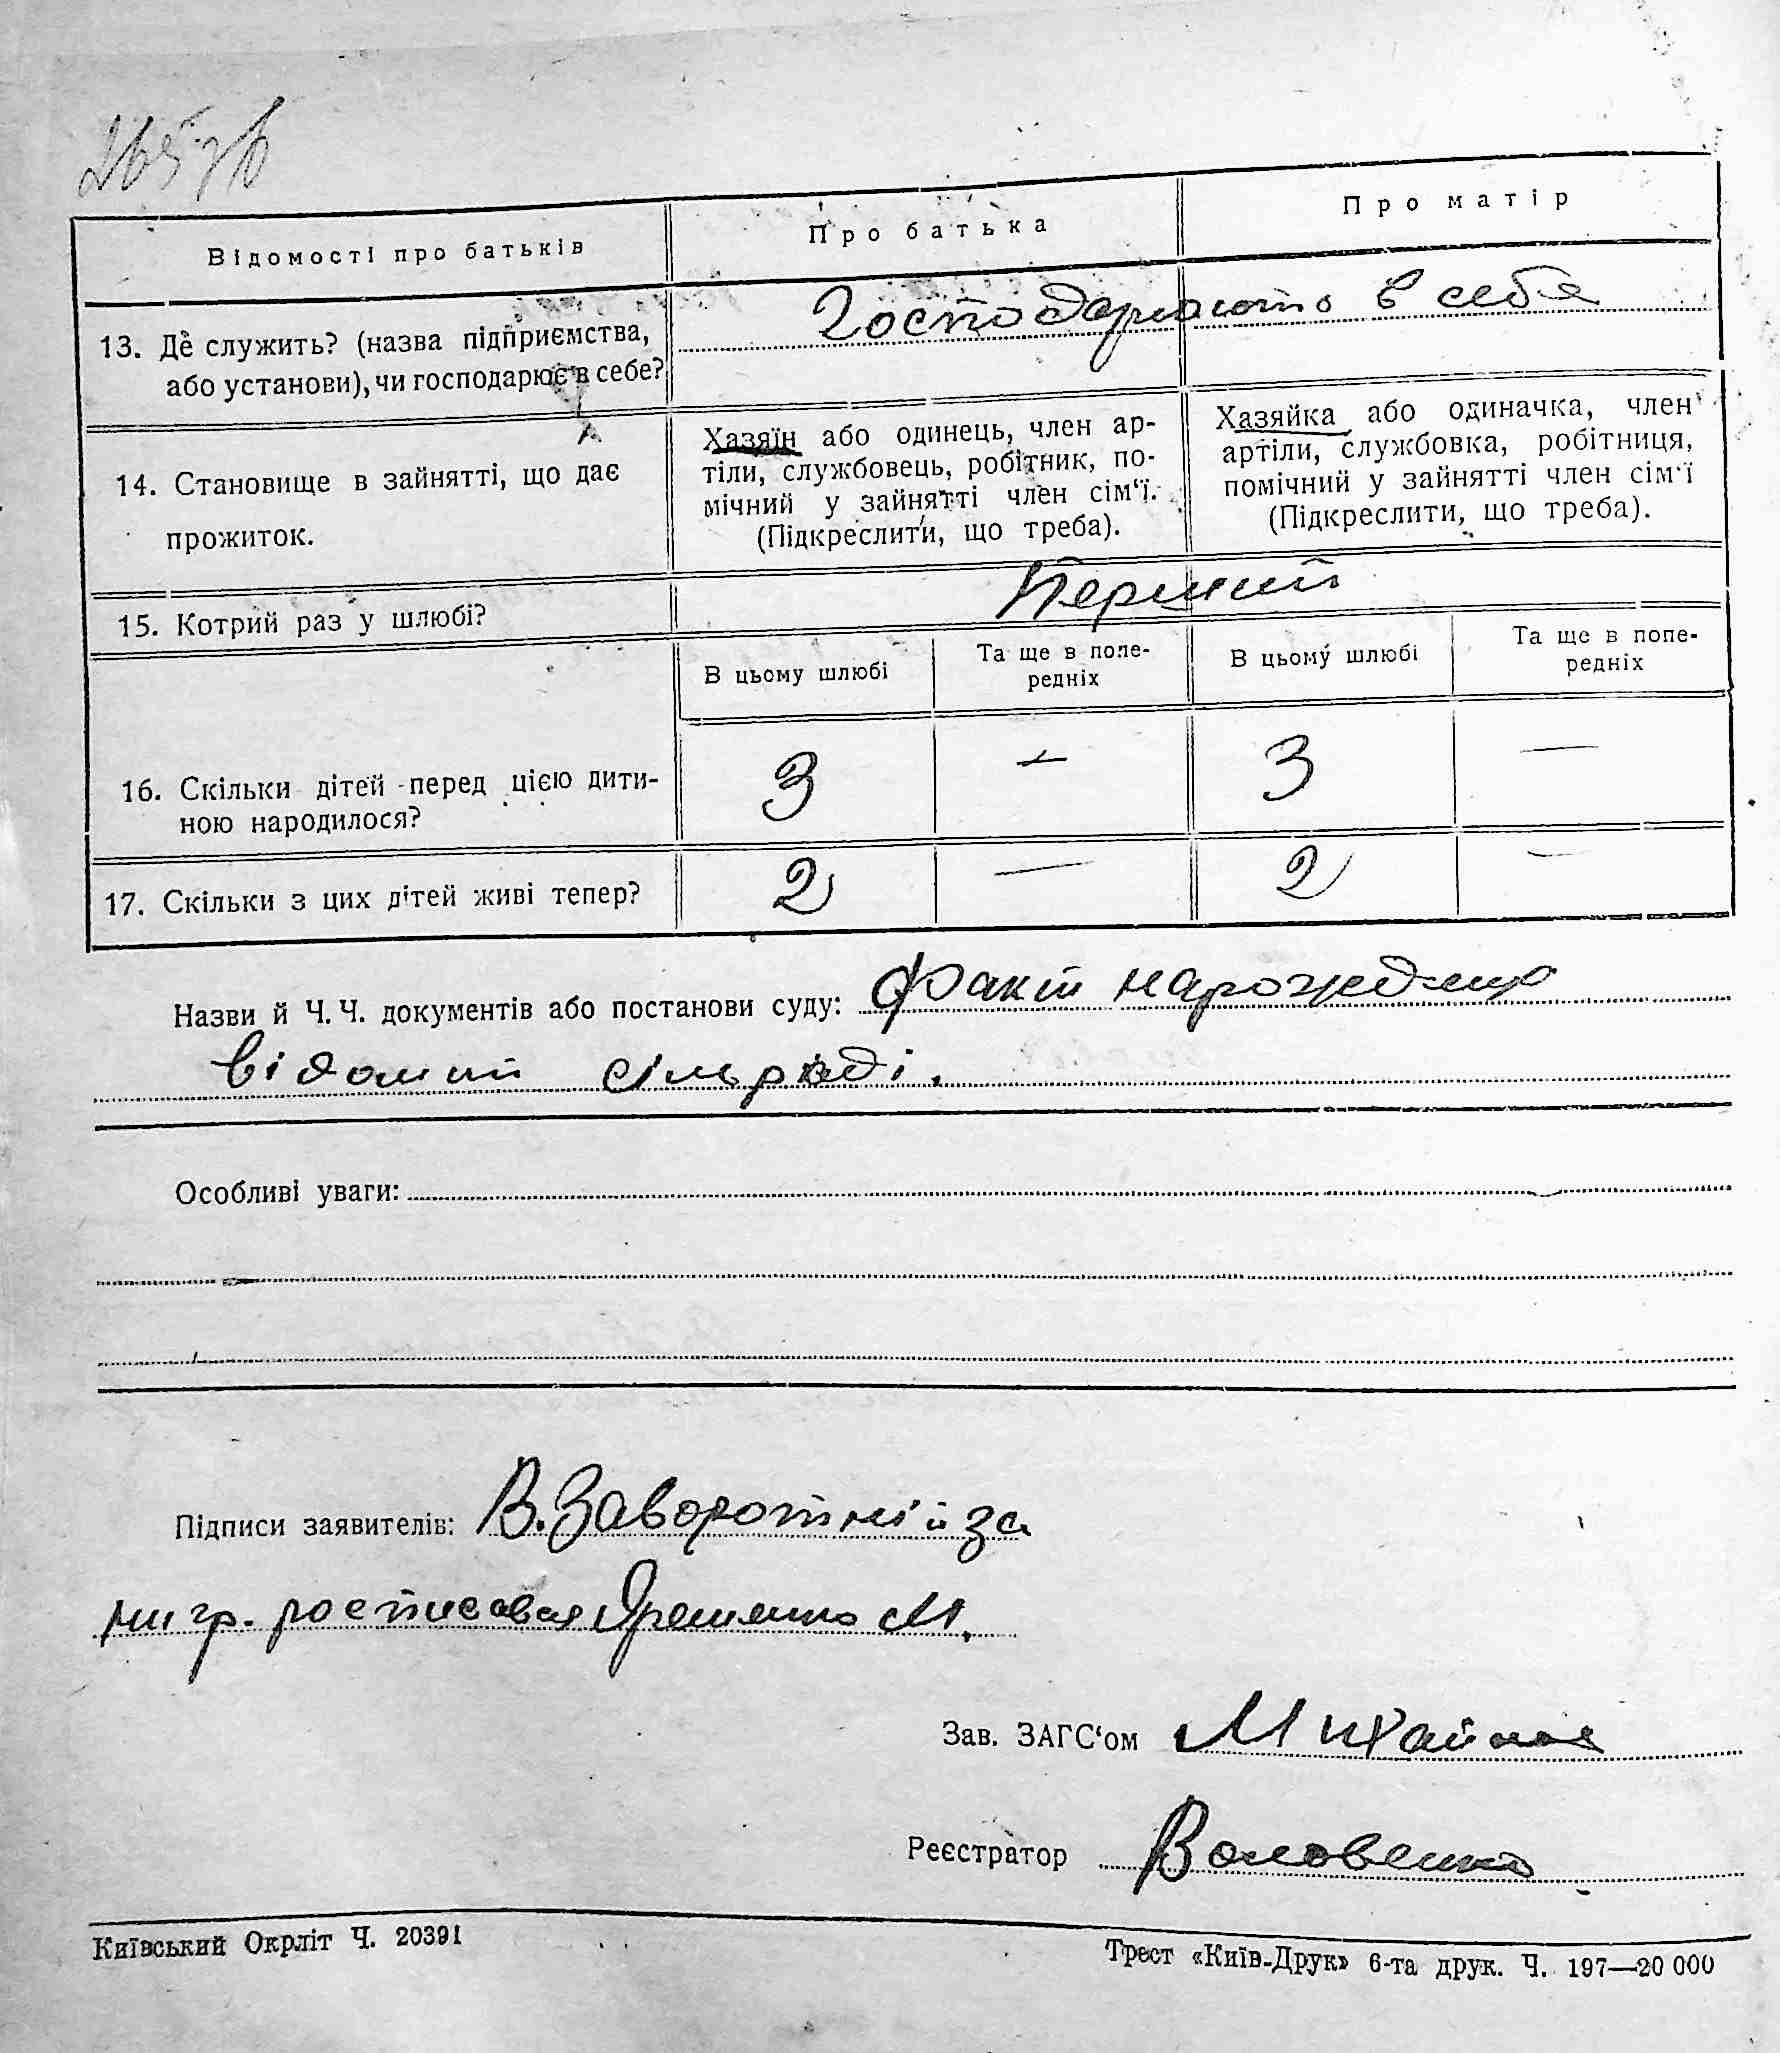 265 зв
Відомості про батьків
Про батька
Про матір
13. Де служить? (назва підприємства,
або установи), чи господарює в себе?
Господарюють в себе
14. Становище в зайнятті, що дає
прожиток.
Хазяїн або одинець, член ар-
тіли, службовець, робітник, по-
мічний у зайнятті член сім‘ї.
(Підкреслити, що треба).
Хазяйка або одиначка, член
артіли, службовка, робітниця,
помічний у зайнятті член сім‘ї
(Підкреслити, що треба).
15. Котрий раз у шлюбі?
Перший
В цьому шлюбі
Та ще в попе-
редніх
В цьому шлюбі
Та ще в попе-
редніх
16. Скільки дітей перед цією дити-
ною народилося?
3 — 3 —
17. Скільки з цих дітей живі тепер?
2 — 2 —
Назви й Ч. Ч. документів або постанови суду: Факт
відомий сільраді.
Особливі уваги:
Підписи заявителів: В. Заворотній за
гр. М.
Зав. ЗАГС‘ом
Реєстратор Воловенко
Київський Окрліт Ч. 20391
Трест «Київ-Друк» 6-та друк. Ч. 197—20 000